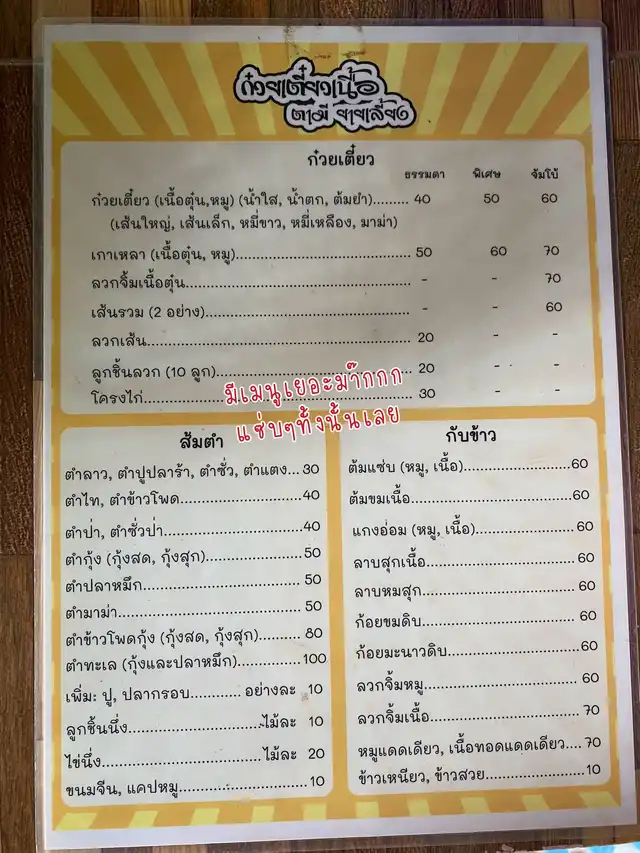 ก๋วยเตี๋ยวเนื้อ
ตามี ยายเลี้ยง
ก๋วยเตี๋ยว
ธรรมดา พิเศษ จัมโบ้
ก๋วยเตี๋ยว (เนื้อตุ๋น,หมู) (น้ำใส, น้ำตก, ต้มยำ)......... 40 50 60
(เส้นใหญ่, เส้นเล็ก, หมี่ขาว, หมี่เหลือง, มาม่า)
เกาเหลา (เนื้อตุ๋น, หมู)..................................... 50 60 70
ลวกจิ้มเนื้อตุ๋น................................................ - - 70
เส้นรวม (2 อย่าง)........................................... - - 60
ลวกเส้น....................................................... 20 - -
ลูกชิ้นลวก (10 ลูก)......................................... 20 - -
โครงไก่........................................................ 30 - -
มีเมนูเยอะม๊ากกก
แซ่บๆทั้งนั้นเลย
ส้มตำ
ตำลาว, ตำปูปลาร้า, ตำซั่ว, ตำแตง... 30
ตำไท, ตำข้าวโพด......................... 40
ตำป่า, ตำซั่วป่า............................ 40
ตำกุ้ง (กุ้งสด, กุ้งสุก)..................... 50
ตำปลาหมึก................................. 50
ตำมาม่า..................................... 50
ตำข้าวโพดกุ้ง (กุ้งสด, กุ้งสุก).......... 80
ตำทะเล (กุ้งและปลาหมึก)............... 100
เพิ่ม: ปู, ปลากรอบ........... อย่างละ 10
ลูกชิ้นนึ่ง............................ไม้ละ 10
ไข่นึ่ง................................. ไม้ละ 20
ขนมจีน, แคปหมู.......................... 10
กับข้าว
ต้มแซ่บ (หมู, เนื้อ)........................60
ต้มขมเนื้อ....................................60
แกงอ่อม (หมู, เนื้อ)...................... 60
ลาบสุกเนื้อ................................. 60
ลาบหมูสุก.................................. 60
ก้อยขมดิบ.................................. 60
ก้อยมะนาวดิบ............................. 60
ลวกจิ้มหมู.................................. 60
ลวกจิ้มเนื้อ................................. 70
หมูแดดเดียว, เนื้อทอดแดดเดียว.... 70
ข้าวเหนียว, ข้าวสวย..................... 10